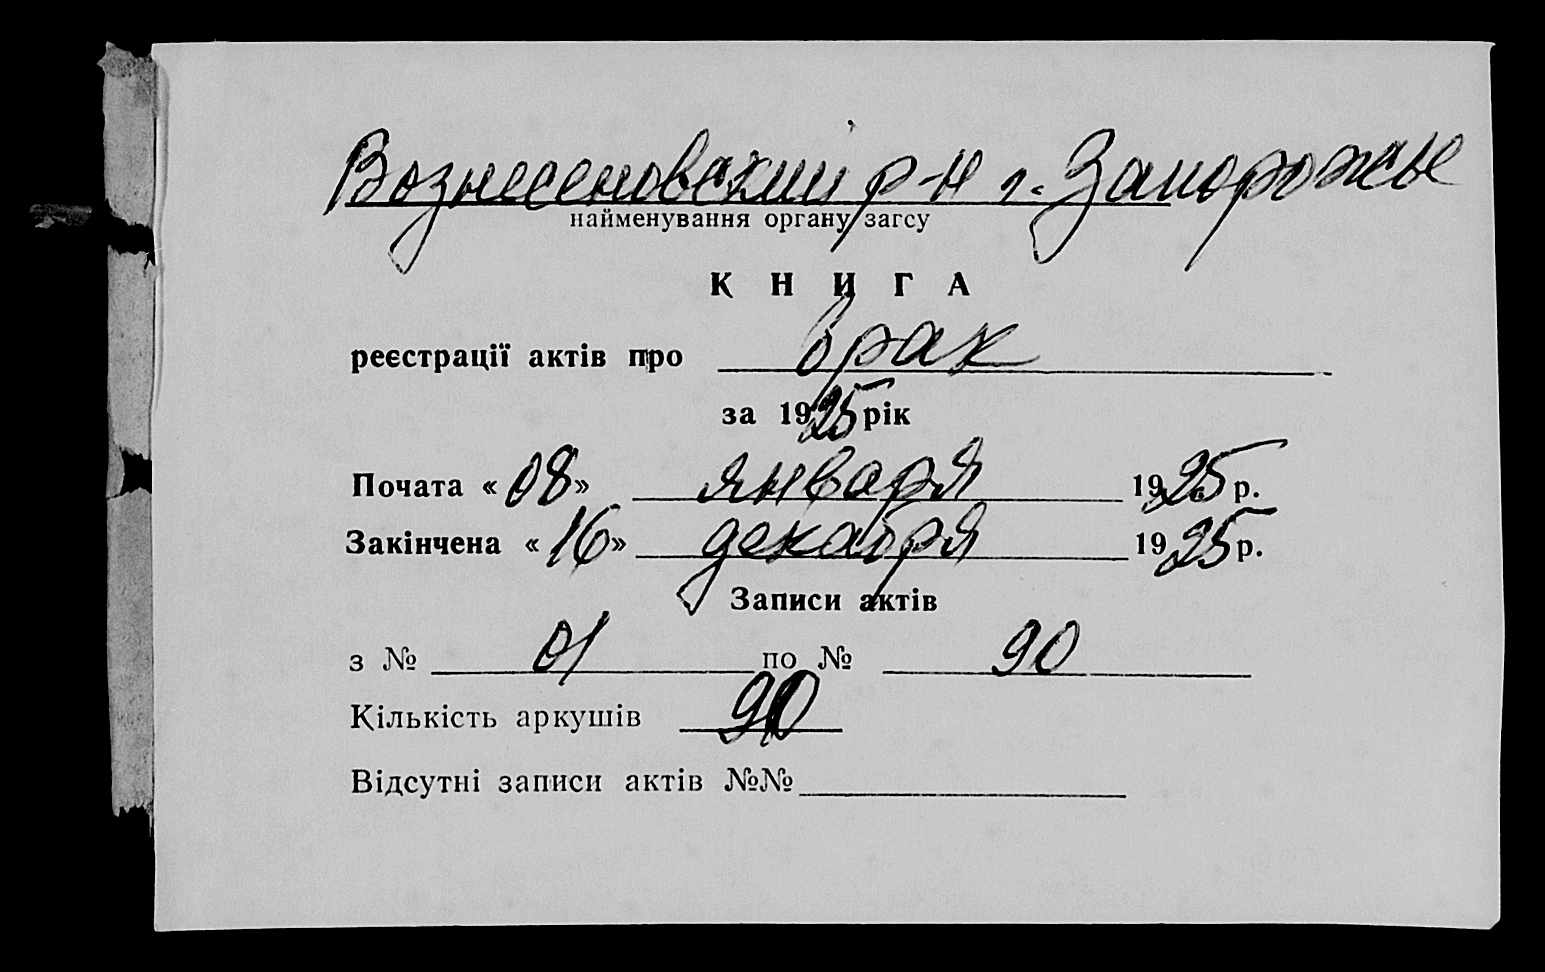 Вознесеновский р-н г. Запорожье
найменування органу загсу
КНИГА
реєстрації актів про брак
за 1925 рік
Почата «08» января 1925 р.
Закінчена «16» декабря 1925 р.
Записи актів
з № 01 по № 90
Кількість аркушів 90
Відсутні записи актів №№